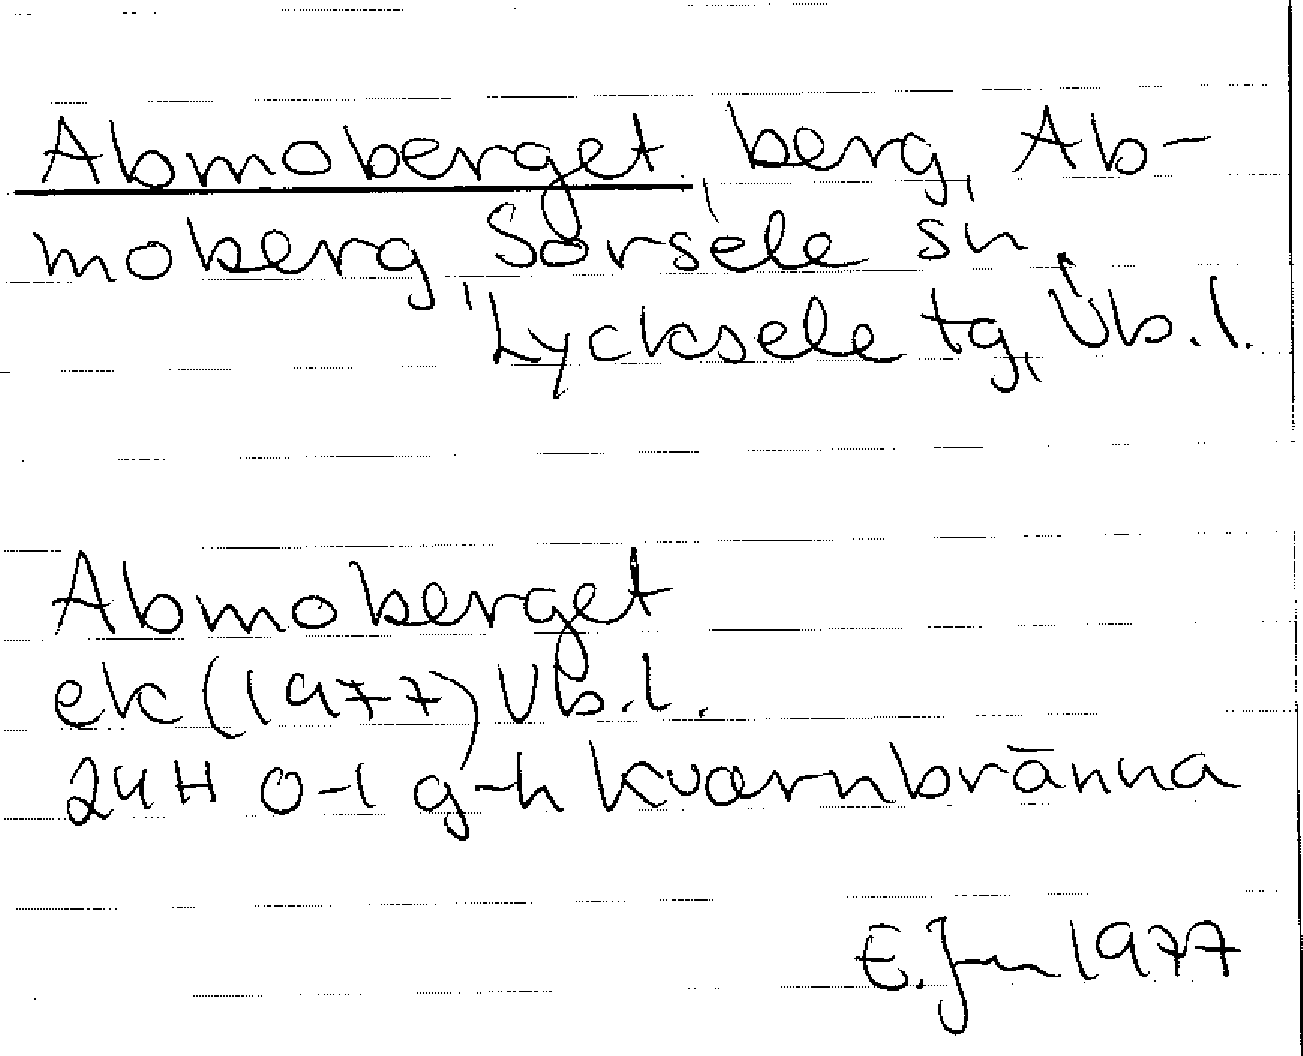 Abmoberget, berg, Ab-
moberg, Sorsele sn,
Lycksele tg, Vb.l.
Abmoberget
ek (1977) Vb.l.
24H 0-1 g-h Kvarnbränna
E. 1977